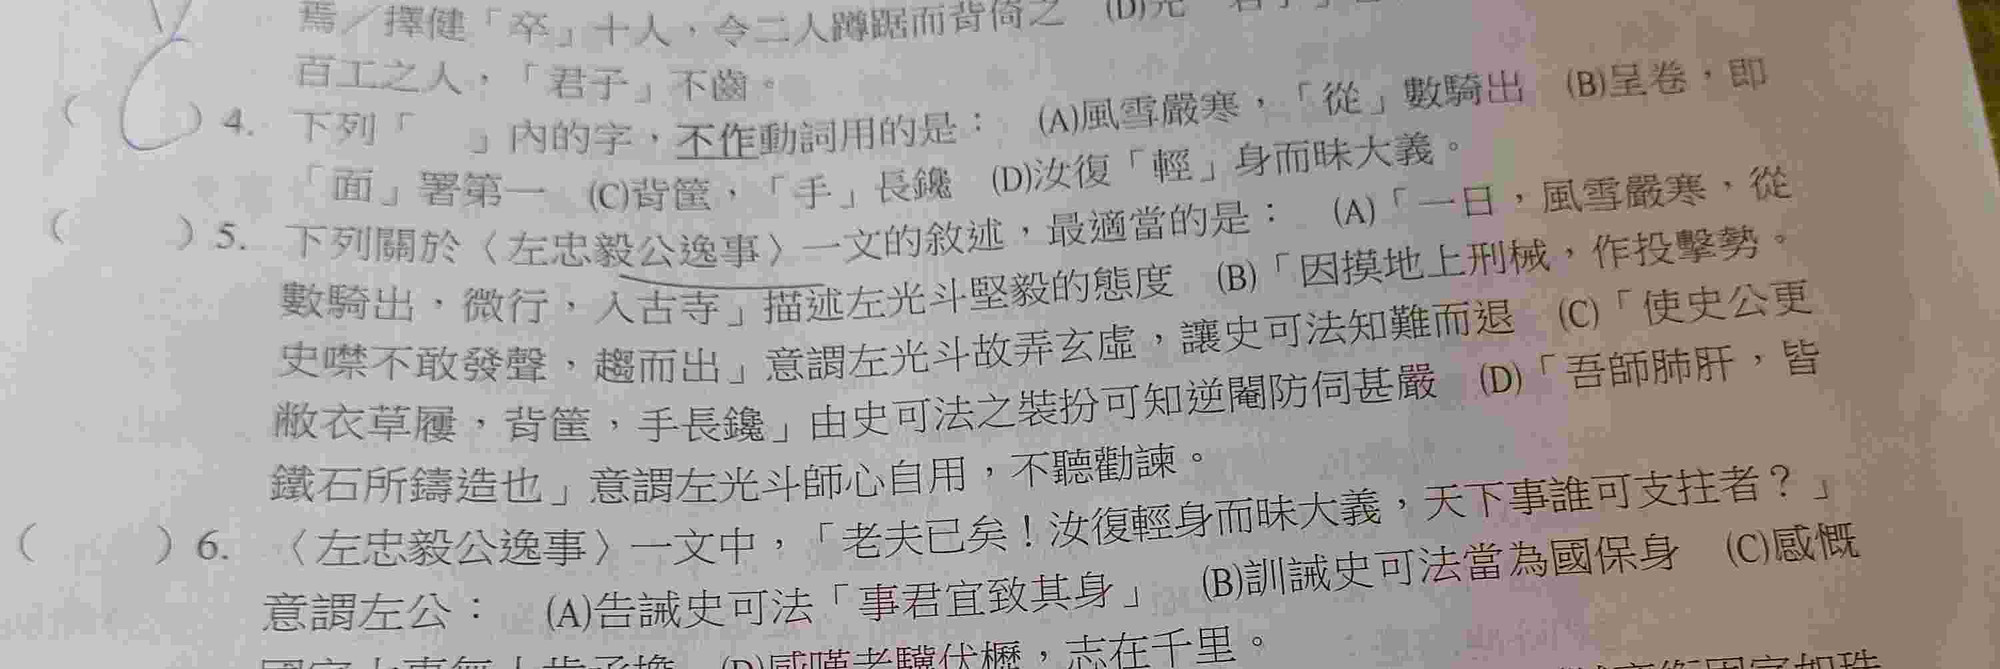 焉／擇健「卒」十人，令二人蹲踞而背倚之 (D)
百工之人，「君子」不齒。
( ) 4. 下列「 」內的字，不作動詞用的是： (A)風雪嚴寒，「從」數騎出 (B)呈卷，即
「面」署第一 (C)背筐，「手」長鑱 (D)汝復「輕」身而昧大義。
( ) 5. 下列關於〈左忠毅公逸事〉一文的敘述，最適當的是： (A)「一日，風雪嚴寒，從
數騎出，微行，入古寺」描述左光斗堅毅的態度 (B)「因摸地上刑械，作投擊勢。
史噤不敢發聲，趨而出」意謂左光斗故弄玄虛，讓史可法知難而退 (C)「使史公更
敝衣草屨，背筐，手長鑱」由史可法之裝扮可知逆閹防伺甚嚴 (D)「吾師肺肝，皆
鐵石所鑄造也」意謂左光斗師心自用，不聽勸諫。
( ) 6. 〈左忠毅公逸事〉一文中，「老夫已矣！汝復輕身而昧大義，天下事誰可支拄者？」
意謂左公： (A)告誡史可法「事君宜致其身」 (B)訓誡史可法當為國保身 (C)感慨
(D)感嘆老驥伏櫪，志在千里。